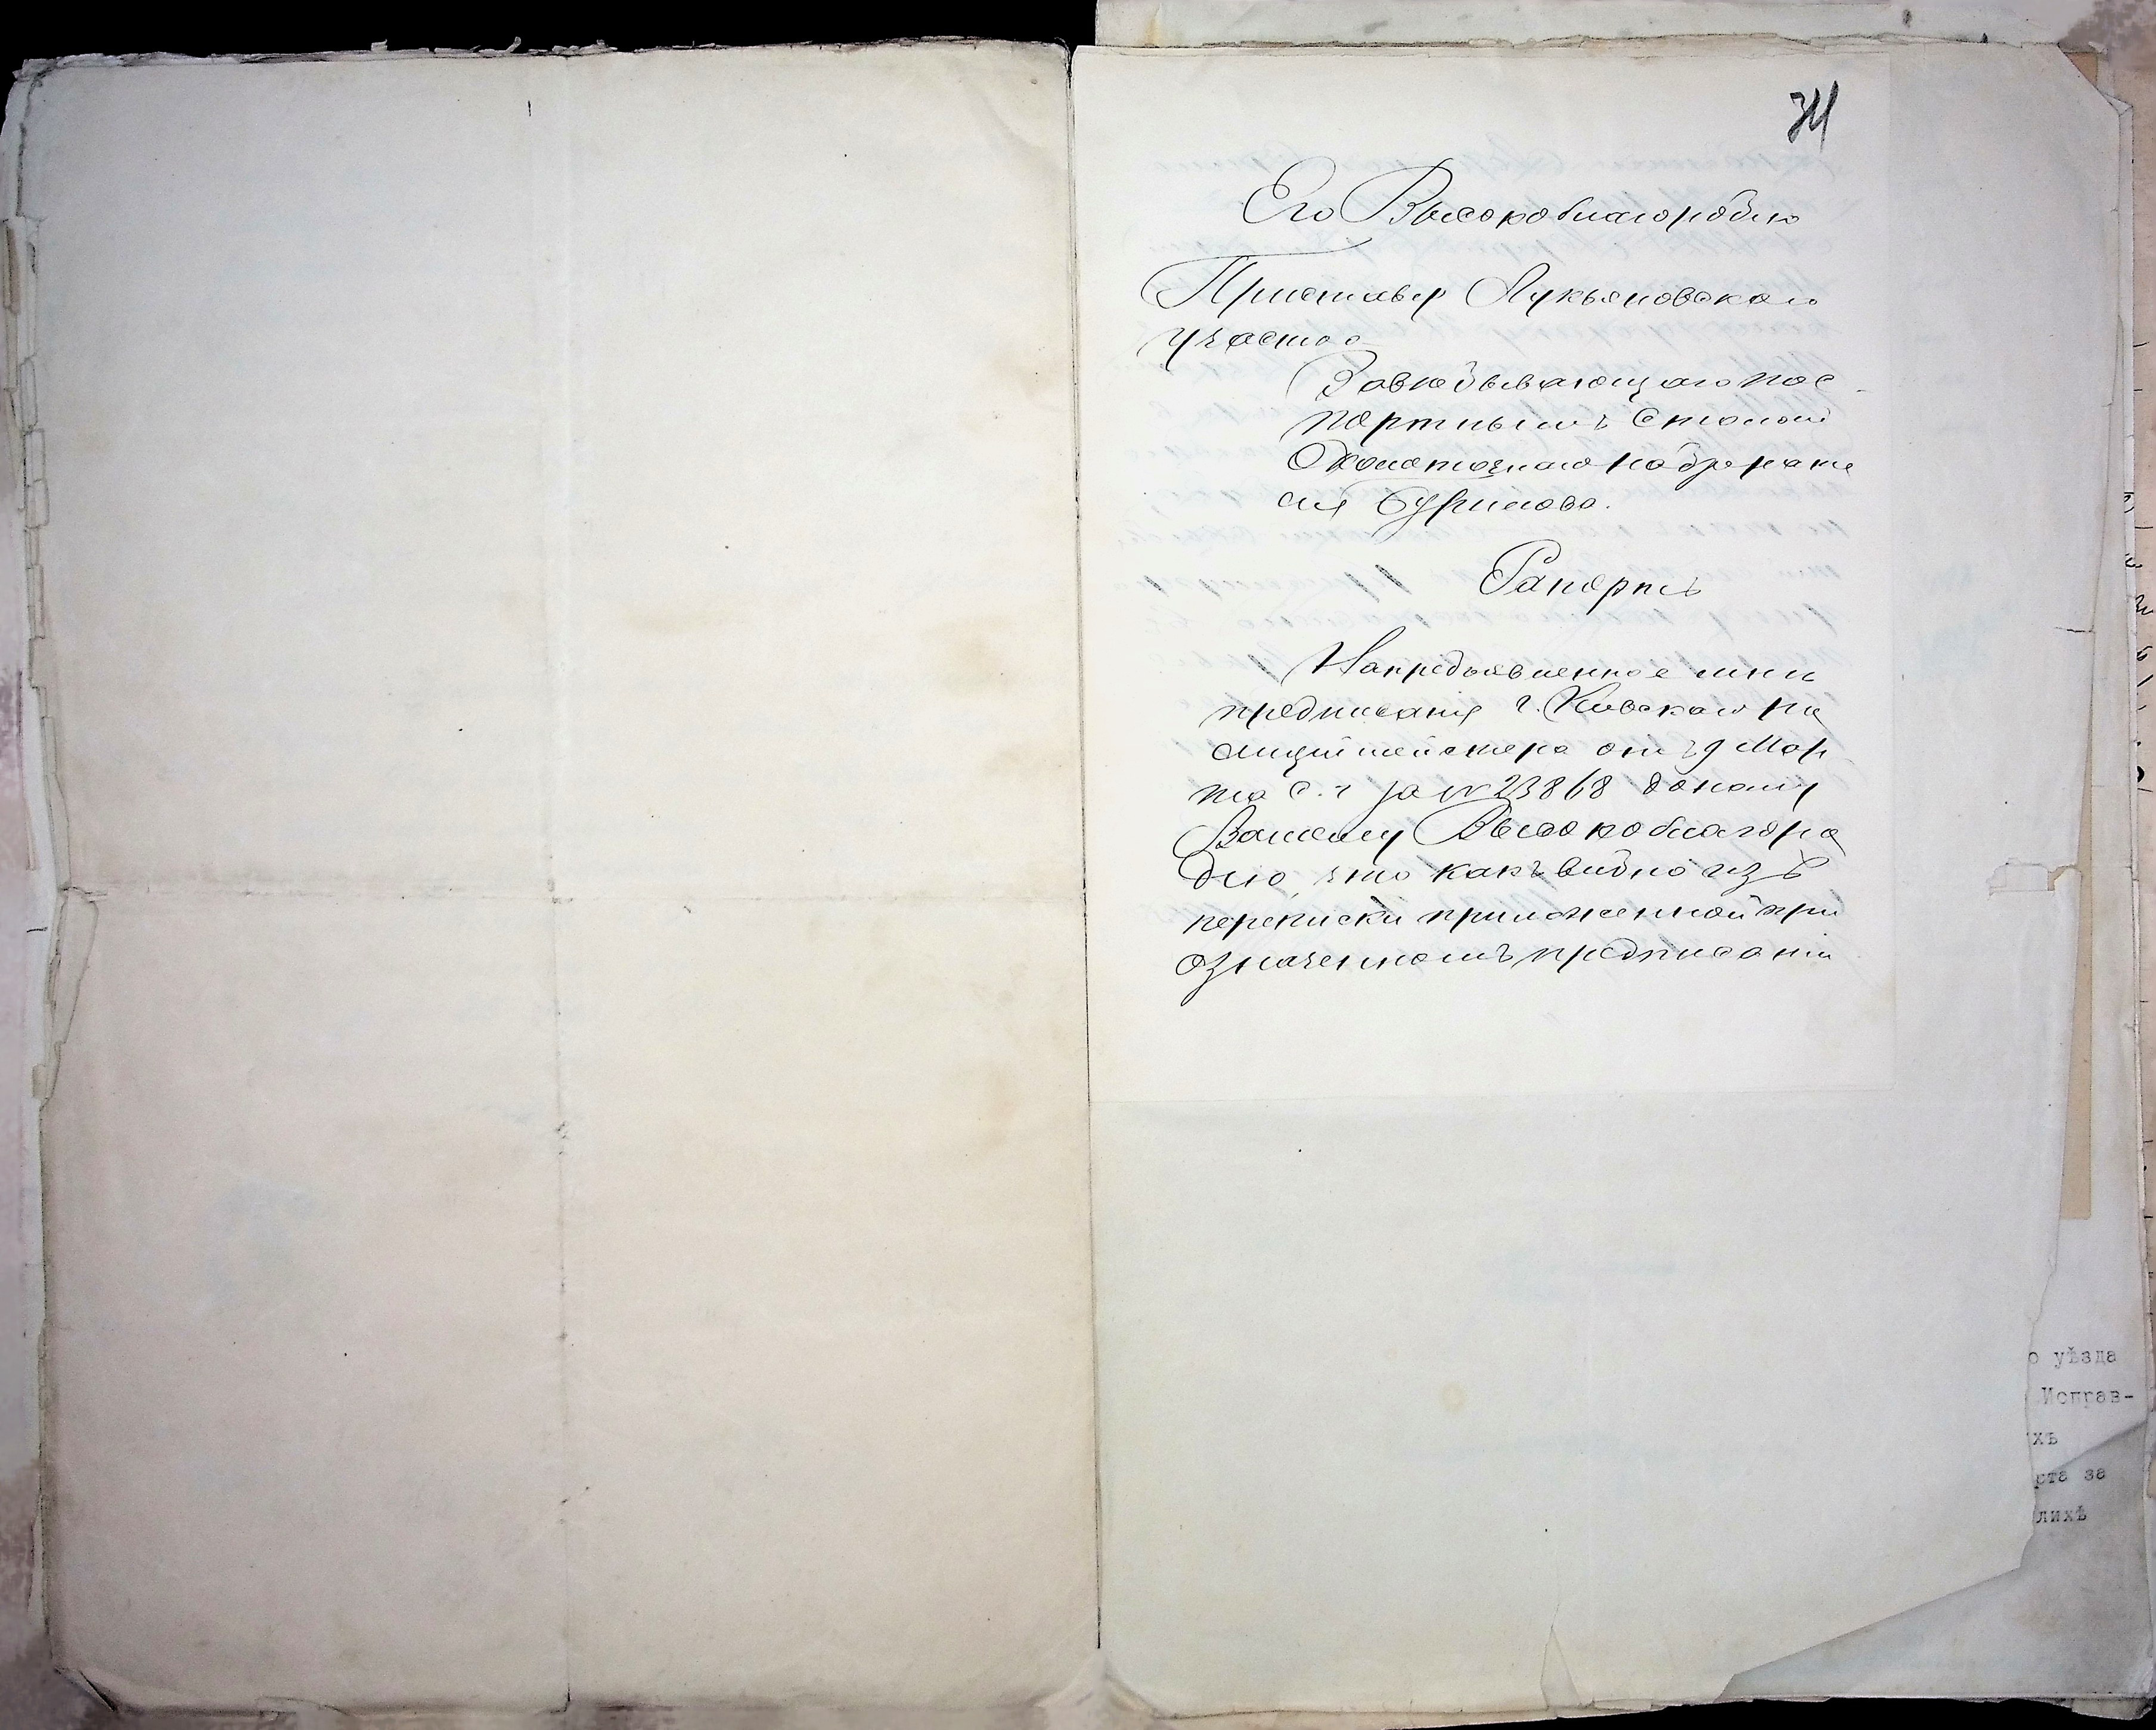 34
Его Высокоблагородію
Приставу Лукьяновскаго
участка
Завѣдывающаго пас
портнымъ столомъ
Околоточнаго надзирате
ля
Рапортъ
На предъявленное мнѣ
предписаніе г. Кіевскаго По
лиціймейстера отъ 9 Мар
та с.г. за № 23868 доношу
Вашему Высокоблагоро
дію, что какъ видно изъ
переписки приложенной при
означенномъ предписаніи
о уѣзда
Исправ-
хъ
рта за
лихѣ